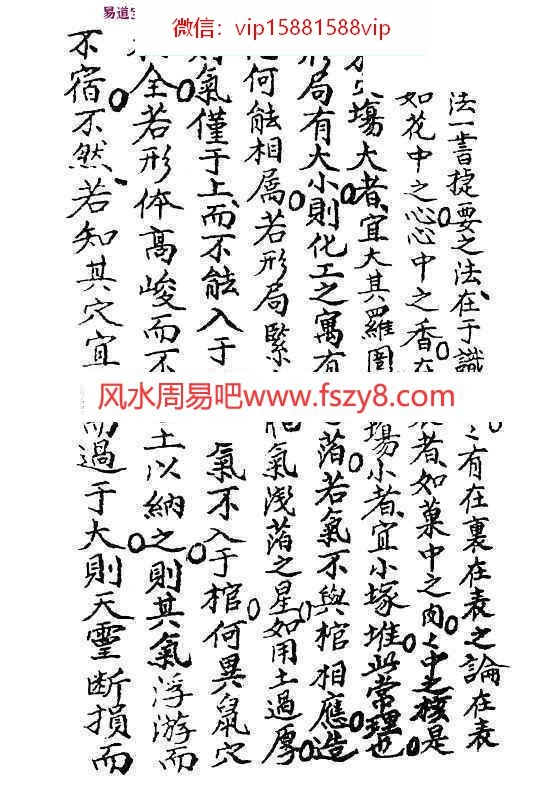 易道
微信：vip15881588vip
法一書捷要之法在于識
如花中之心心中之香在
塲大者宜大其羅圍
形局有大小則化工之寓有
何能相屬若形局緊
則氣僅于上而不能入于
全若形体高峻而不
不宿不然若知其穴宜
风水周易吧www.fszy8.com
々有在裏在表之論在表
者如菓中之肉々中之核是
塲小者宜小塚堆此常理也
落若氣不與棺相應造
氣淺落之星如用土過厚
氣不入于棺何異鼠穴
土以納之則其氣浮游而
而過于大則天靈断損而